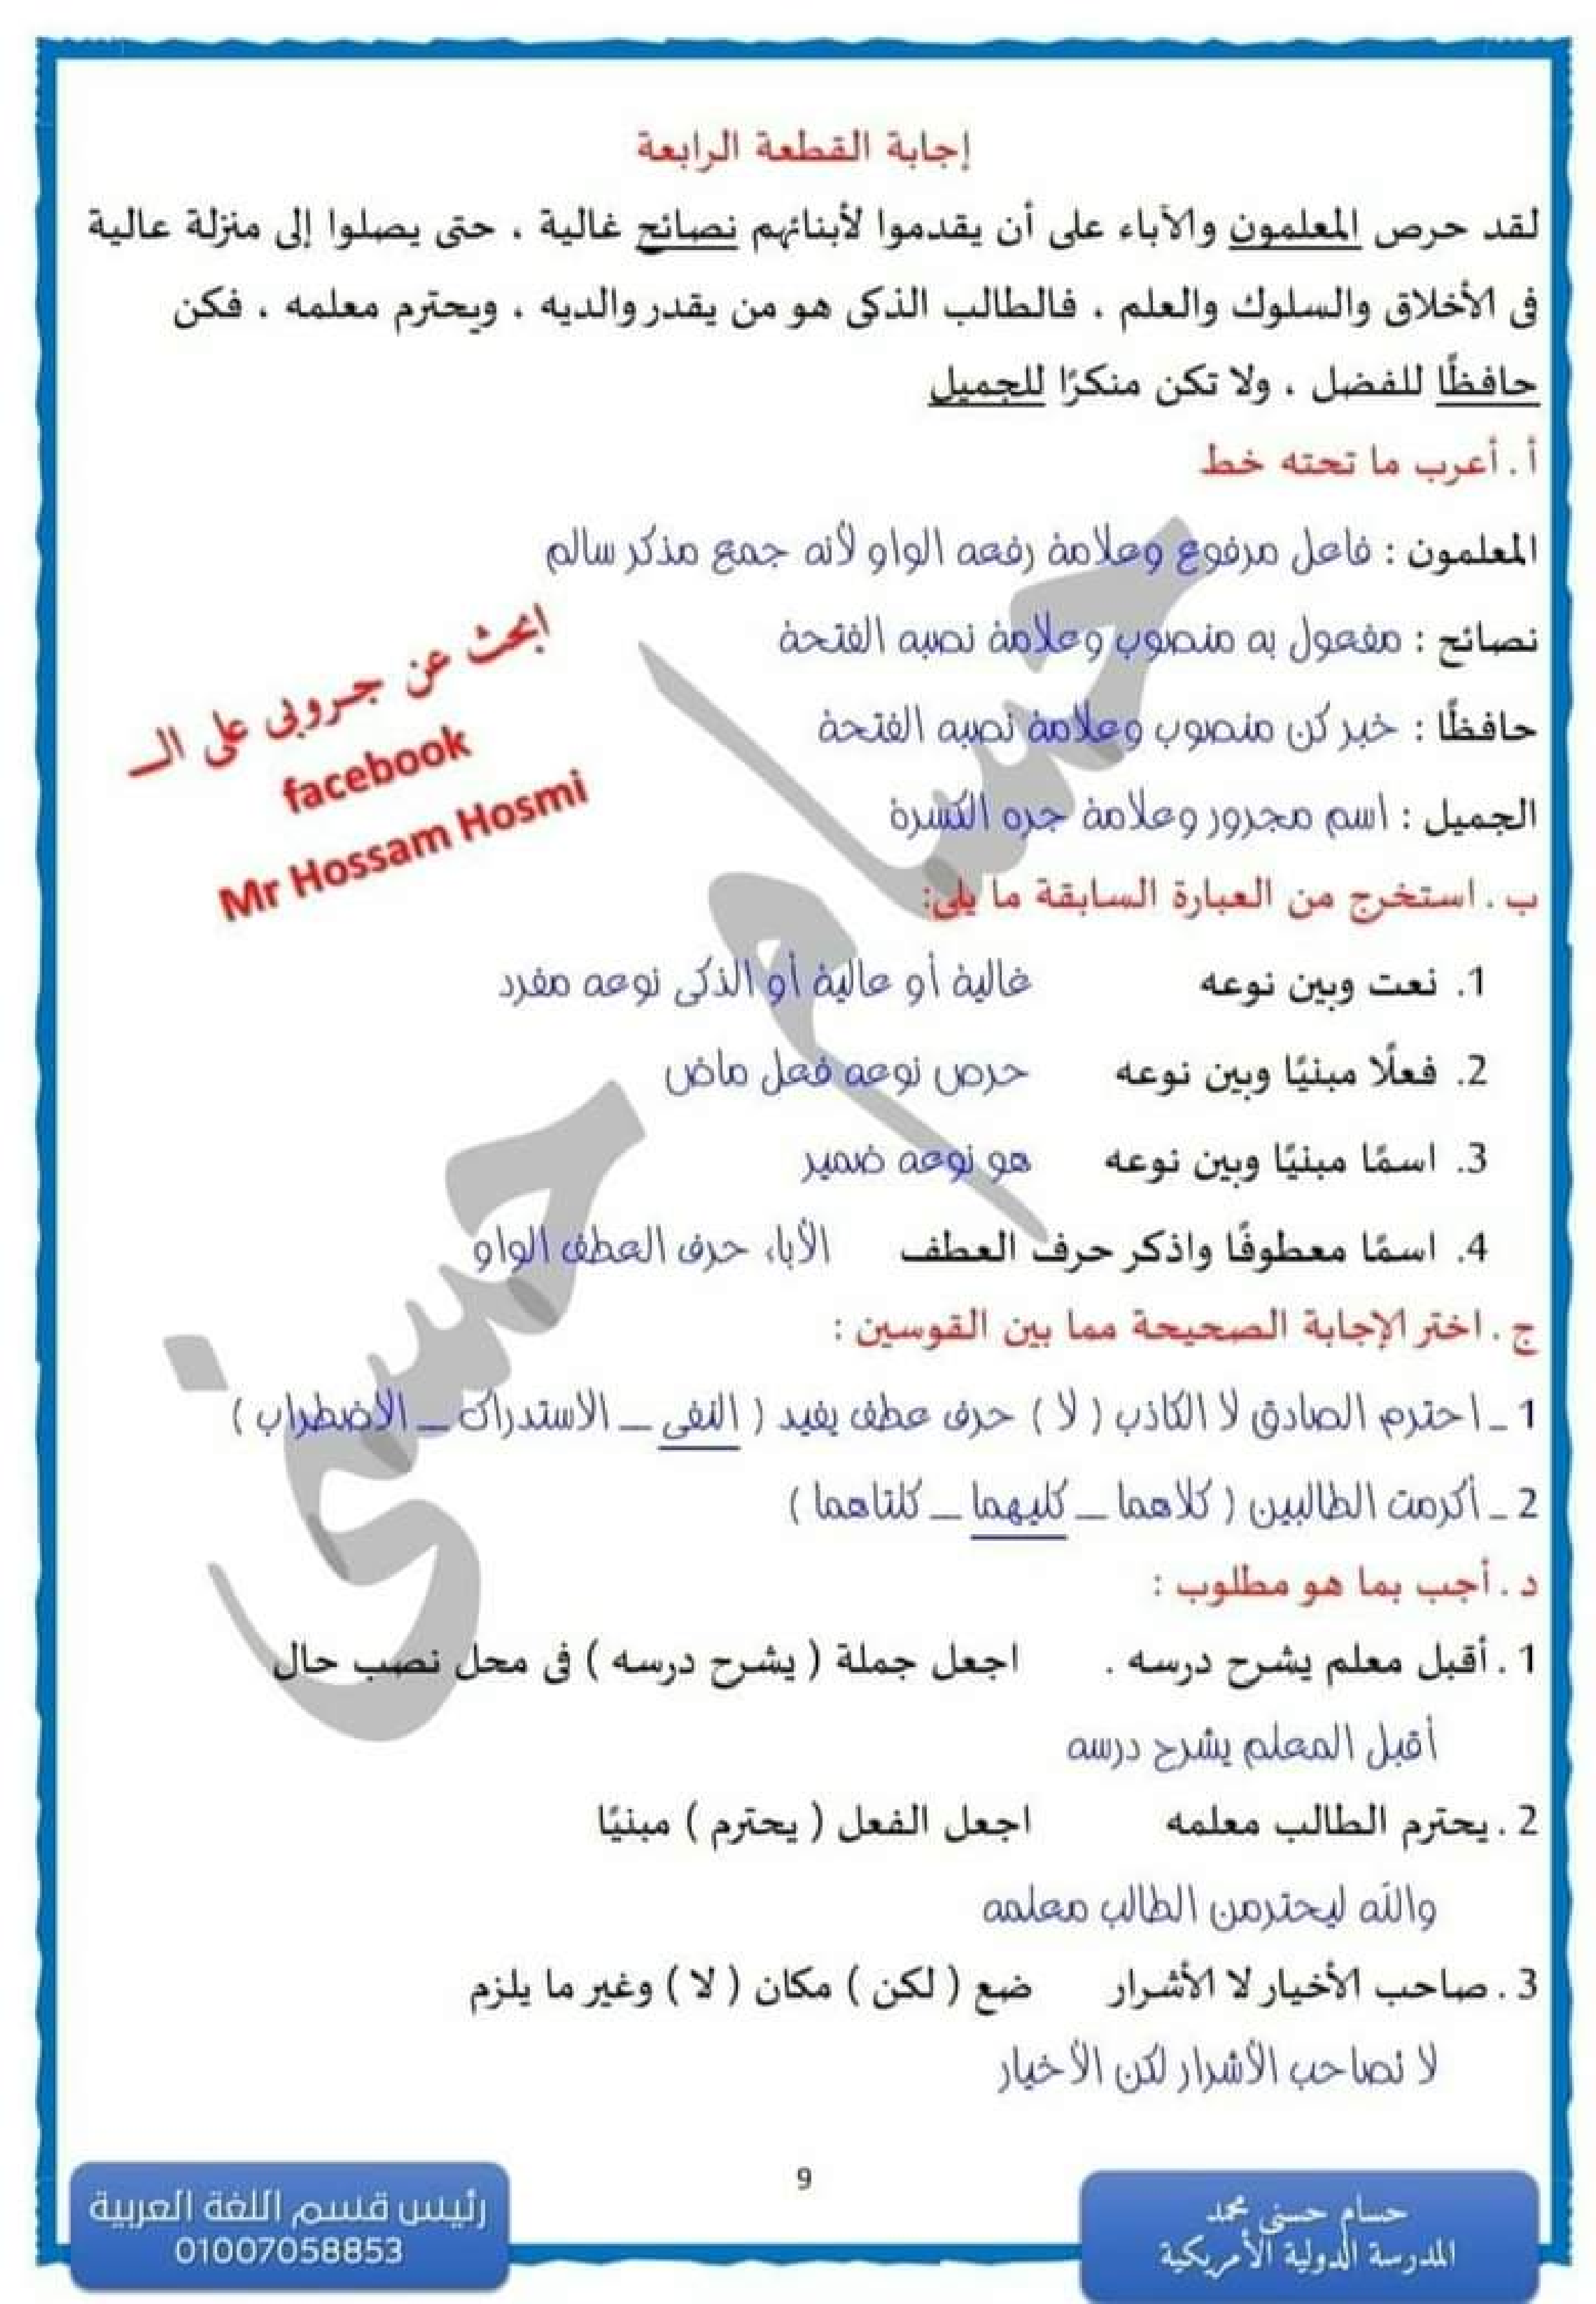 إجابة القطعة الرابعة
لقد حرص المعلمون والآباء على أن يقدموا لأبنائهم نصائح غالية ، حتى يصلوا إلى منزلة عالية
فى الأخلاق والسلوك والعلم ، فالطالب الذكى هو من يقدر والديه ، ويحترم معلمه ، فكن
حافظًا للفضل ، ولا تكن منكرًا للجميل
أ . أعرب ما تحته خط
المعلمون : فاعل مرفوع وعلامة رفعه الواو لأنه جمع مذكر سالم
نصائح : مفعول به منصوب وعلامة نصبه الفتحة
حافظًا : خبر كن منصوب وعلامة نصبه الفتحة
الجميل : اسم مجرور وعلامة جره الكسرة
ابحث عن جروبى على الـ
facebook
Mr Hossam Hosmi
ب . استخرج من العبارة السابقة ما يلى:
1. نعت وبين نوعه غالية أو عالية أو الذكى نوعه مفرد
2. فعلًا مبنيًا وبين نوعه حرص نوعه فعل ماض
3. اسمًا مبنيًا وبين نوعه هو نوعه ضمير
4. اسمًا معطوفًا واذكر حرف العطف الأباء حرف العطف الواو
ج . اختر الإجابة الصحيحة مما بين القوسين :
1 ـ احترم الصادق لا الكاذب ( لا ) حرف عطف يفيد ( النفى ــ الاستدراك ــ الاضطراب )
2 ـ أكرمت الطالبين ( كلاهما ــ كليهما ــ كلتاهما )
د . أجب بما هو مطلوب :
1 . أقبل معلم يشرح درسه . اجعل جملة ( يشرح درسه ) فى محل نصب حال
أقبل المعلم يشرح درسه
2 . يحترم الطالب معلمه اجعل الفعل ( يحترم ) مبنيًا
والله ليحترمن الطالب معلمه
3 . صاحب الأخيار لا الأشرار ضع ( لكن ) مكان ( لا ) وغير ما يلزم
لا تصاحب الأشرار لكن الأخيار
حسام حسنى
9
حسام حسنى محمد
المدرسة الدولية الأمريكية
رئيس قسم اللغة العربية
01007058853